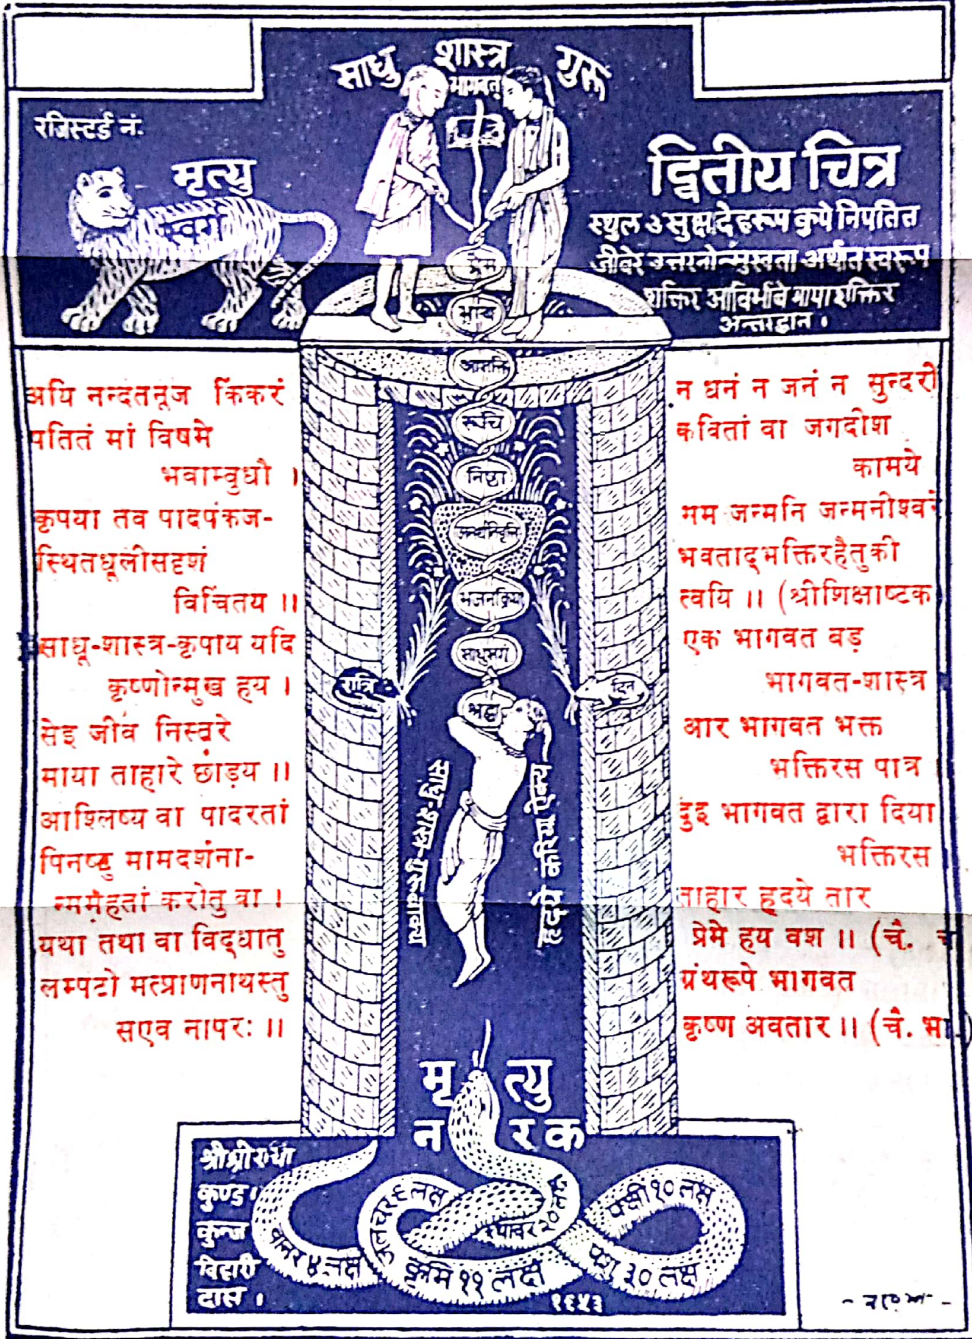 साधु शास्त्र गुरू
भागवत
रजिस्टर्ड नं:
मृत्यु
स्वर्ग
द्वितीय चित्र
स्थुल ओ सुक्ष्म देहरूप कुपे निपतित
जीवेर उत्तरणोन्मुखता अर्थात स्वरूप
शक्तिर आविर्भावे माया शक्तिर
अन्तरद्धान ।
प्रेम
भाव
आसक्ति
रूचि
निष्ठा
अनर्थनिवृत्ति
भजनक्रिया
साधुसंग
श्रद्धा
रात्रि
दिन
साधु-शास्त्र-गुरू-वाक्य
हृदये करिया ऐक्य
अयि नन्दतनूज किंकरं
पतितं मां विषमे
भवाम्वुधौ ।
कृपया तव पादपंकज-
स्थितधूलीसदृशं
विचिंतय ।।
साधू-शास्त्र-कृपाय यदि
कृष्णोन्मुख हय ।
सेइ जीव निस्तरे
माया ताहारे छाड़य ।।
आश्लिष्य वा पादरतां
पिनष्टु मामदर्शना-
न्मर्महतां करोतु वा ।
यथा तथा वा विद्धातु
लम्पटो मत्प्राणनाथस्तु
सएव नापरः ।।
न धनं न जनं न सुन्दरीं
कवितां वा जगदीश
कामये
मम जन्मनि जन्मनीश्वरे
भवताद्भक्तिरहैतुकी
त्वयि ।। (श्रीशिक्षाष्टक
एक भागवत बड़
भागवत-शास्त्र
आर भागवत भक्त
भक्तिरस पात्र
दुइ भागवत द्वारा दिया
भक्तिरस
ताहार हृदये तार
प्रेमे हय वश ।। (चै. च
ग्रंथरूपे भागवत
कृष्ण अवतार ।। (चै. भा.)
मृत्यु
नरक
श्रीश्रीराधा
कुण्ड ।
कुन्ज
विहारी
दास ।
वानर ४ लक्ष
जलचर ९ लक्ष
कृमि ११ लक्ष
स्थावर २० लक्ष
पक्षी १० लक्ष
पशु ३० लक्ष
१९५३